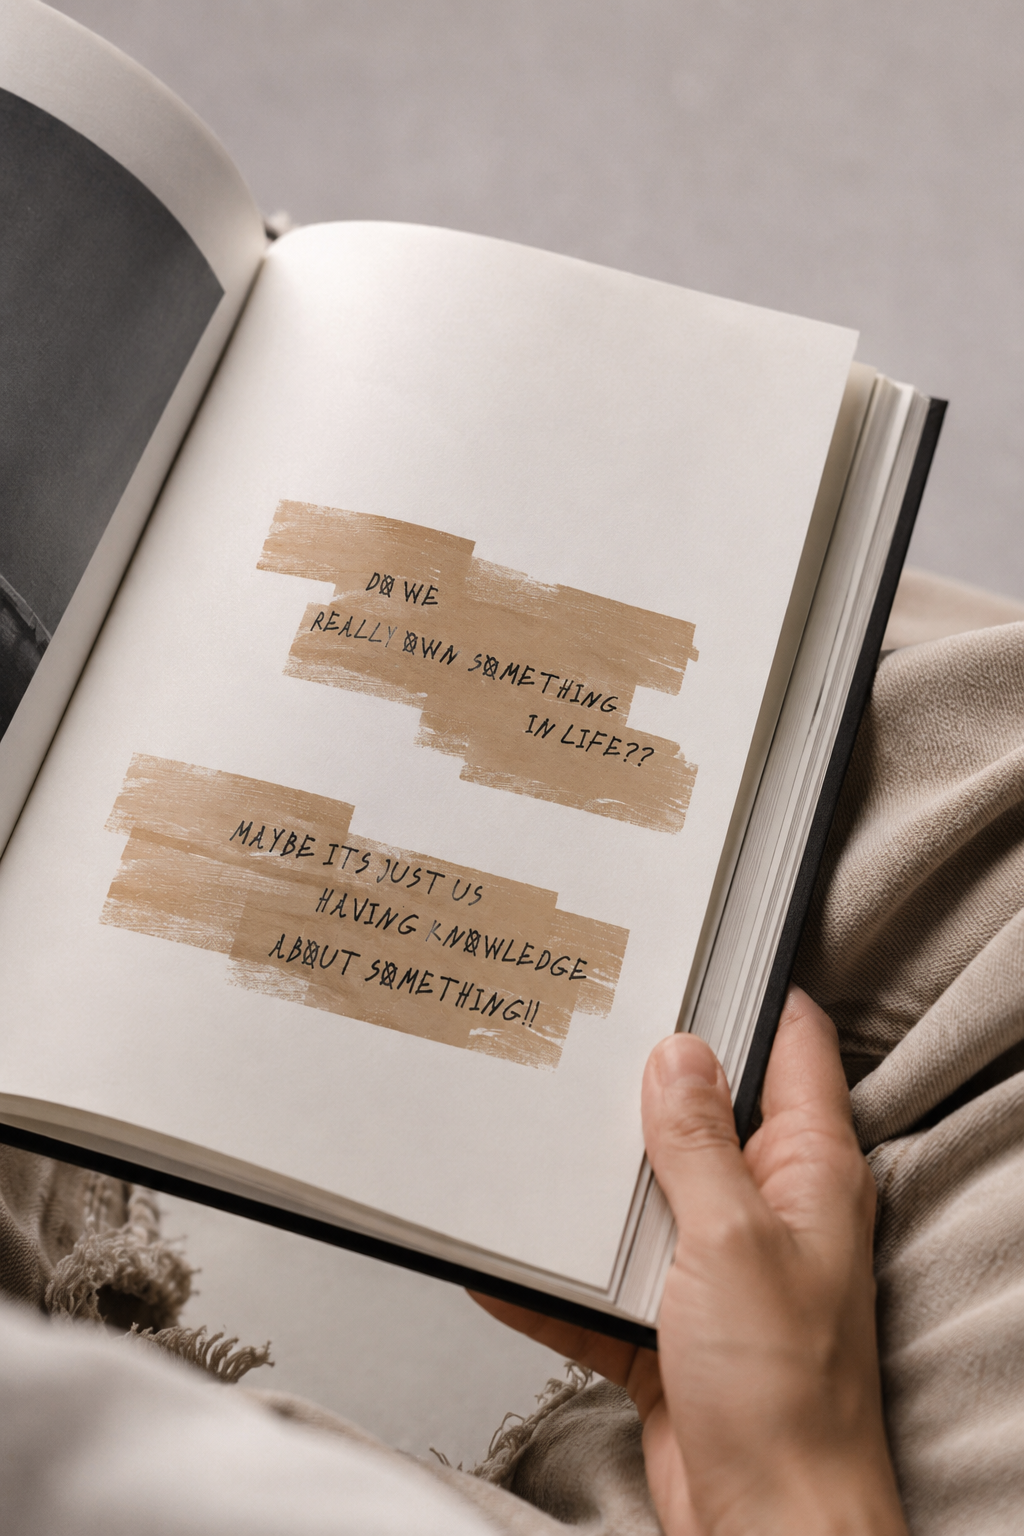 DO WE
REALLY OWN SOMETHING
IN LIFE??
MAYBE ITS JUST US
HAVING KNOWLEDGE
ABOUT SOMETHING!!